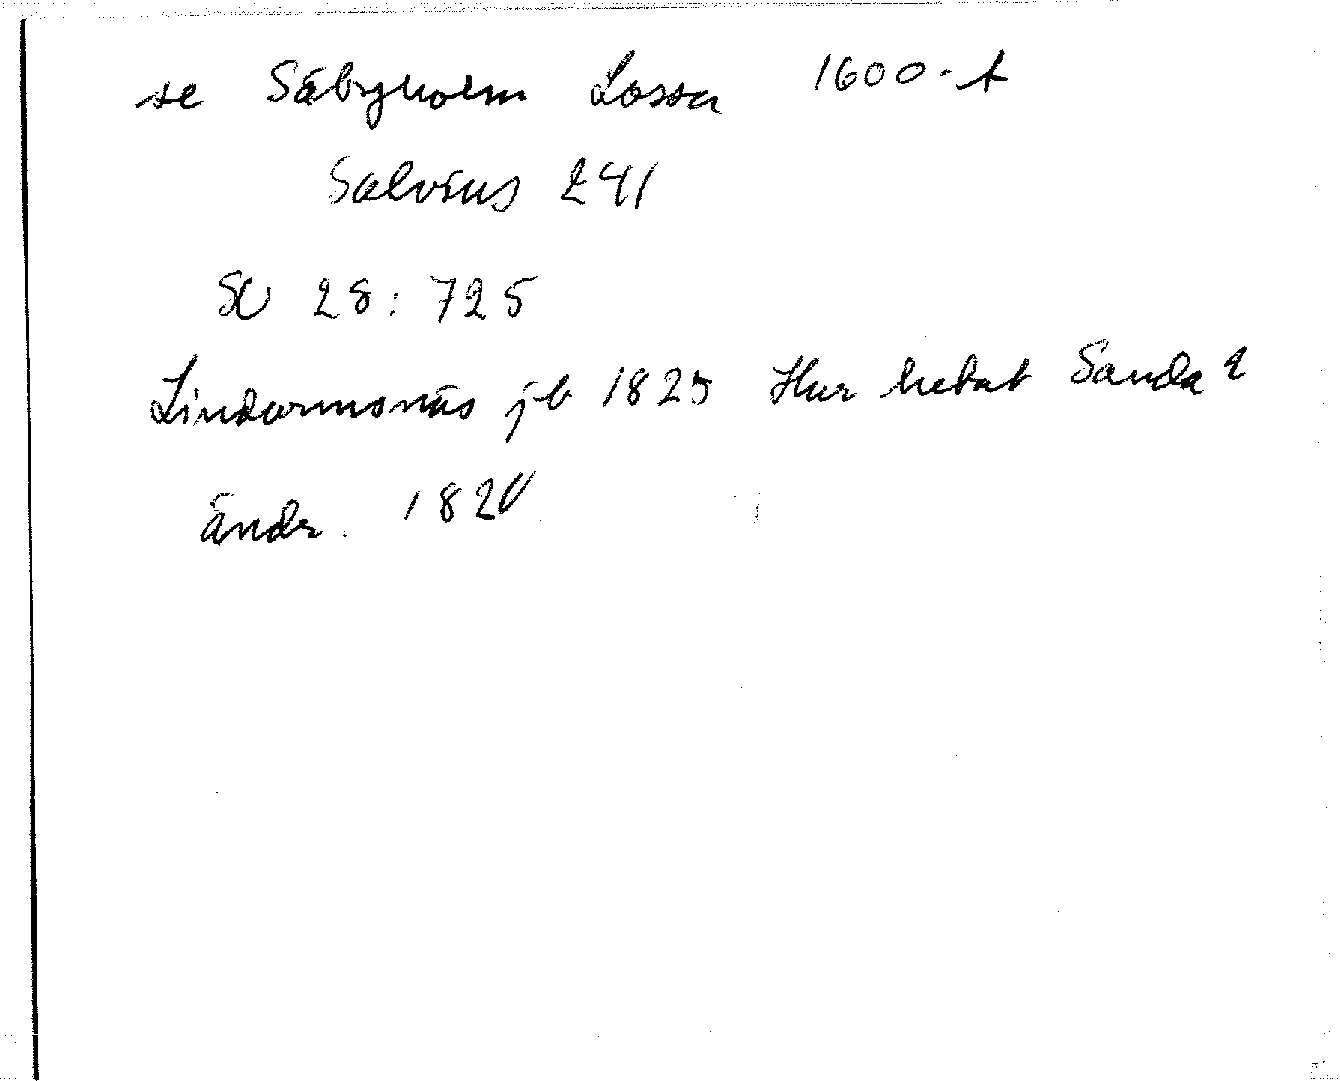 se Säbyholm Låssa 1600-t
Salvius 241
SU 28:725
Lindormsnäs jb 1825 Har hetat Sanda
ändr. 182